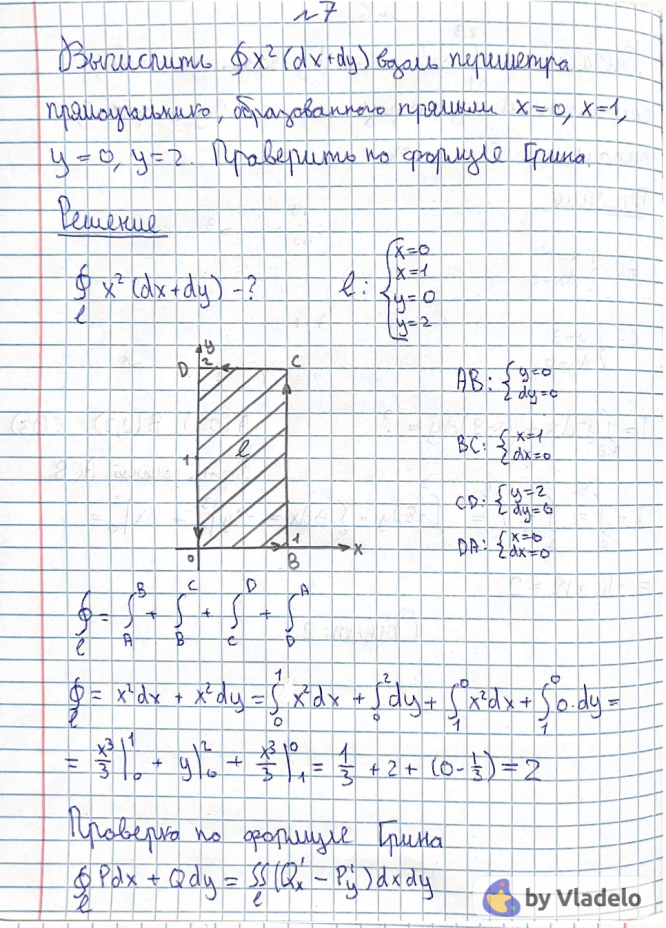 №7
Вычислить ∮x²(dx+dy) вдоль периметра
прямоугольника, образованного прямыми x=0, x=1,
y=0, y=2. Проверить по формуле Грина.
Решение
∮_l x²(dx+dy) -? l: { x=0
x=1
y=0
y=2
y
D 2 C
AB: { y=0
dy=0
1 l
BC: { x=1
dx=0
CD: { y=2
dy=0
0 B 1 x
DA: { x=0
dx=0
∮_l = ∫_A^B + ∫_B^C + ∫_C^D + ∫_D^A
∮_l = x²dx + x²dy = ∫_0^1 x²dx + ∫_0^2 dy + ∫_1^0 x²dx + ∫_1^0 0·dy =
= x³/3 |_0^1 + y|_0^2 + x³/3 |_1^0 = 1/3 + 2 + (0 - 1/3) = 2
Проверка по формуле Грина
∮_l Pdx + Qdy = ∬_l (Q'_x - P'_y) dxdy
by Vladelo